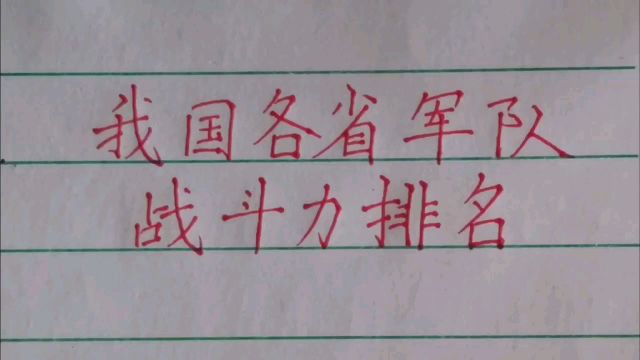 我国各省军队
战斗力排名